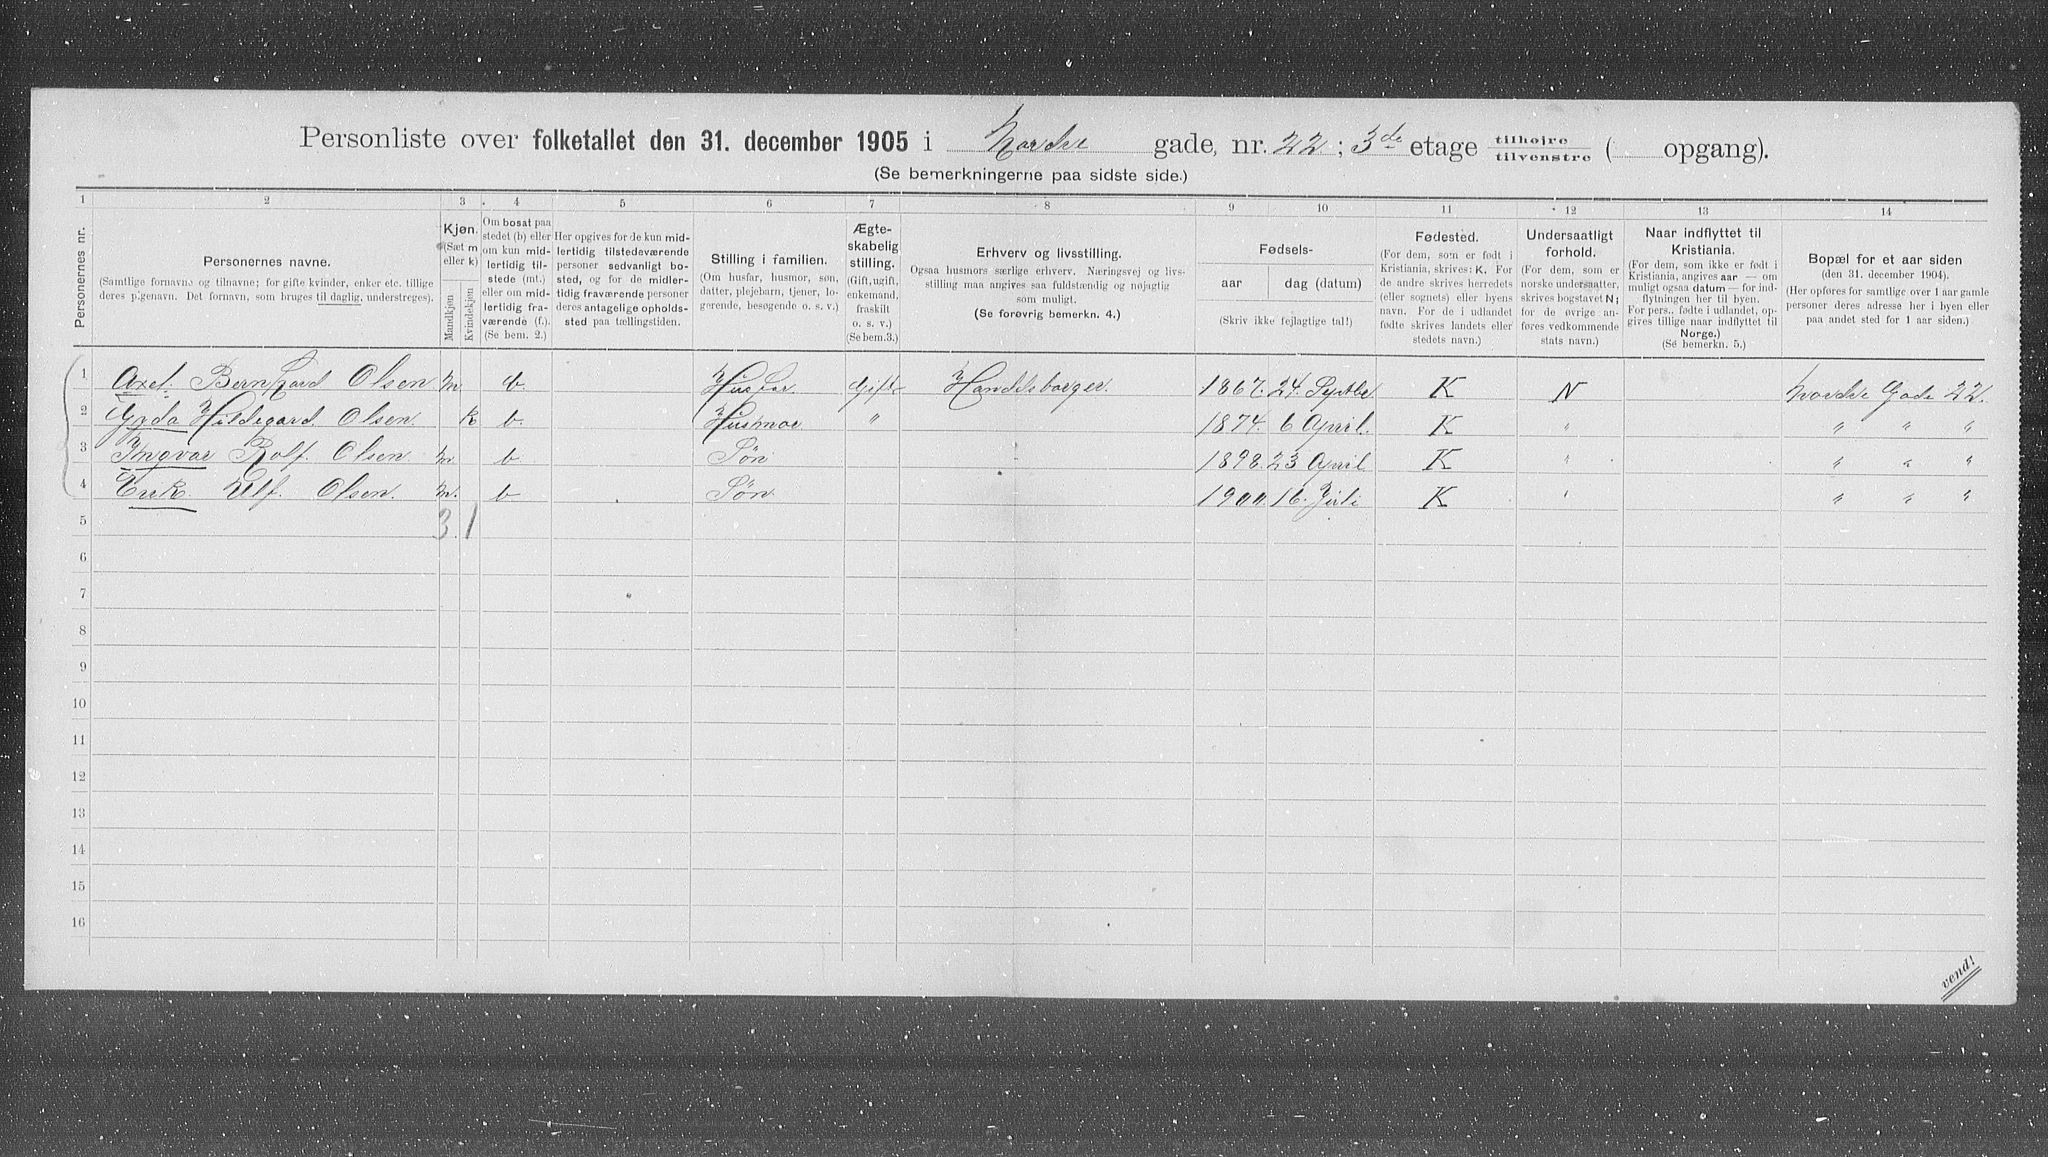 Personliste over folketallet den 31. december 1905 i Nordre gade, nr. 22 ; 3de etage tilhøjre tilvenstre ( opgang).
(Se bemerkningerne paa sidste side.)
1 2 3 4 5 6 7 8 9 10 11 12 13 14
Personernes nr.
Personernes navne.
(Samtlige fornavne og tilnavne; for gifte kvinder, enker etc. tillige
deres pigenavn. Det fornavn, som bruges til daglig, understreges).
Kjøn.
(Sæt m
eller k)
Mandkjøn
Kvindekjøn
Om bosat paa
stedet (b) eller
om kun mid-
lertidig til-
stede (mt.)
eller om mid-
lertidig fra-
værende (f.).
(Se bem. 2.)
Her opgives for de kun mid-
lertidig tilstedeværende
personer sedvanligt bo-
sted, og for de midler-
tidig fraværende personer
deres antagelige opholds-
sted paa tællingstiden.
Stilling i familien.
(Om husfar, husmor, søn,
datter, plejebarn, tjener, lo-
gerende, besøgende o. s. v.)
Ægte-
skabelig
stilling.
(Gift, ugift,
enkemand,
fraskilt
o. s. v.)
(Se bem. 3.)
Erhverv og livsstilling.
Ogsaa husmors særlige erhverv. Næringsvej og livs-
stilling maa angives saa fuldstændig og nøjagtig
som muligt.
(Se forøvrig bemerkn. 4.)
Fødsels-
aar dag (datum)
(Skriv ikke fejlagtige tal!)
Fødested.
(For dem, som er født i
Kristiania, skrives: K. For
de andre skrives herredets
(eller sognets) eller byens
navn. For de i udlandet
fødte skrives landets eller
stedets navn.)
Undersaatligt
forhold.
(For dem, som er
norske undersaatter,
skrives bogstavet N;
for de øvrige an-
føres vedkommende
stats navn.)
Naar indflyttet til
Kristiania.
(For dem, som ikke er født i
Kristiania, angives aar — om
muligt ogsaa datum — for ind-
flytningen her til byen.
For pers., fødte i udlandet, op-
gives tillige naar indflyttet til
Norge.)
(Se bemerkn. 5.)
Bopæl for et aar siden
(den 31. december 1904).
(Her opføres for samtlige over 1 aar gamle
personer deres adresse her i byen eller
paa andet sted for 1 aar siden.)
1 Axel Bernhard Olsen m b Husfar Gift Handelsborger. 1867. 24. Septbr K N Nordre Gade 22.
2 Hildegard Olsen k b. Husmor " 1874. 6 April. K " " " "
3 Ingvar Rolf Olsen m b Søn 1898. 23 April K " " " "
4 Erik Ulf Olsen. m. b Søn 1900. 16 Juli K " " " "
5 3. 1
6
7
8
9
10
11
12
13
14
15
16
vend!